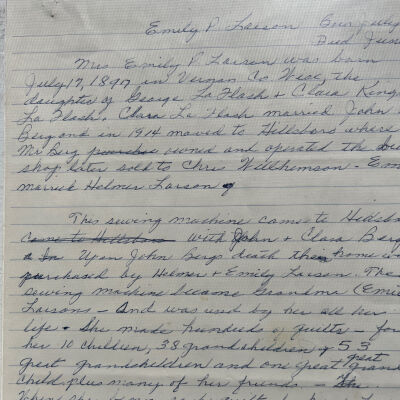 Emily P Larson Born July
Died June
Mrs. Emily P Larson was born
July 17, 1897 in Vernon Co Wisc, the
daughter of George La Flash & Clara King
La Flash. Clara La Flash married John
Berg and in 1914 moved to Hillsboro where
Mr Berg purchase owned and operated the
shop later sold to Chris Wilhemson - Em
married Helmer Larson
This sewing machine came to Hillsbo
came to Hillsboro with John & Clara Berg
Upon John Bergs death the home wa
purchased by Helmer & Emily Larson. The
sewing machine became Grandma (Emil
Larsons - and was used by her all her
life. She made hundreds of quilts - for
her 10 children, 38 grandchildren & 53
great grandchildren and one great great grand
child plus many of her friends -